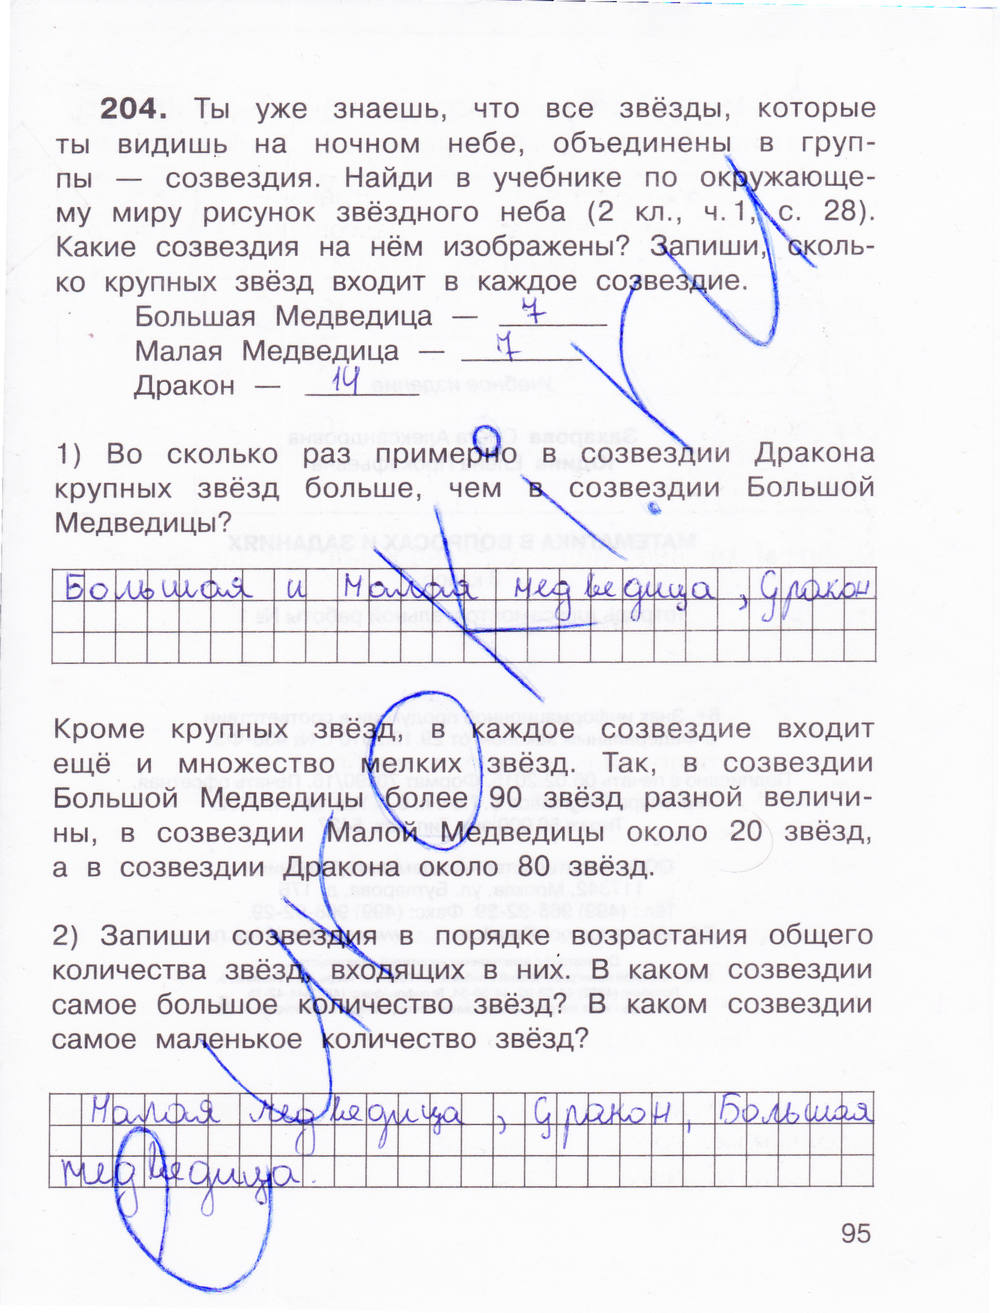 204. Ты уже знаешь, что все звёзды, которые
ты видишь на ночном небе, объединены в груп-
пы — созвездия. Найди в учебнике по окружающе-
му миру рисунок звёздного неба (2 кл., ч.1, с. 28).
Какие созвездия на нём изображены? Запиши, сколь-
ко крупных звёзд входит в каждое созвездие.
Большая Медведица — 7
Малая Медведица — 7
Дракон — 14
1) Во сколько раз примерно в созвездии Дракона
крупных звёзд больше, чем в созвездии Большой
Медведицы?
Большая и Малая медведица, Дракон
Кроме крупных звёзд, в каждое созвездие входит
ещё и множество мелких звёзд. Так, в созвездии
Большой Медведицы более 90 звёзд разной величи-
ны, в созвездии Малой Медведицы около 20 звёзд,
а в созвездии Дракона около 80 звёзд.
2) Запиши созвездия в порядке возрастания общего
количества звёзд, входящих в них. В каком созвездии
самое большое количество звёзд? В каком созвездии
самое маленькое количество звёзд?
Малая медведица, Дракон, Большая
медведица.
95